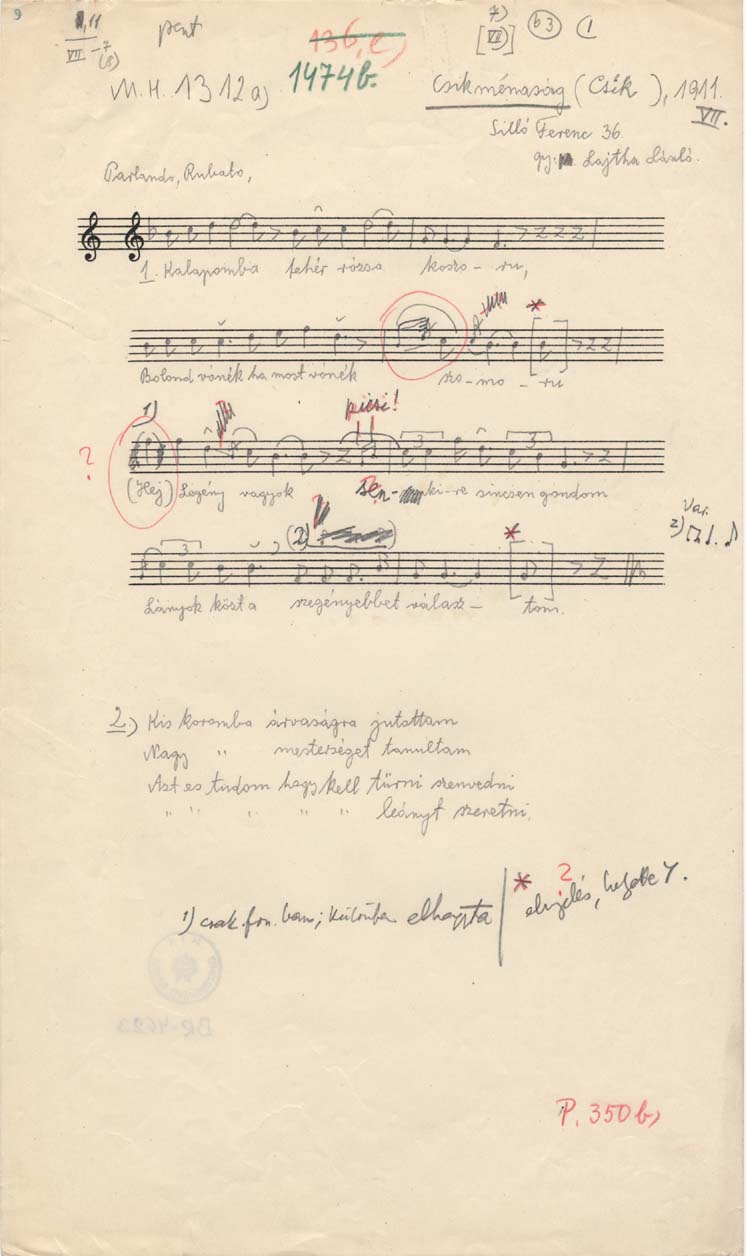 9
VII
pent
136, e)
7)
[VII]
b3
1
M.H. 1312a)
1474b.
Csikménaság (Csik), 1911.
VII.
Silló Ferenc 36.
gy. Lajtha László.
Parlando, Rubato,
1. Kalapomba fehér rózsa koszo - ru,
*
Bolond vónék ha most vónék szo-mo - ru
1)
picsi!
?
(Hej) Legény vagyok sen- ki-re sincsen gondom
3 3
Var.
2)
(2)
?
*
3
Lányok közt a szegényebbet válasz - tom.
2.) Kis koromba árvaságra jutottam
Nagy " mesterséget tanultam
Azt es tudom hogy kell türni szenvedni
" " " " " leányt szeretni.
1) csak fon. ban; különben elhagyta
* ?
P. 350b)
BR-4623